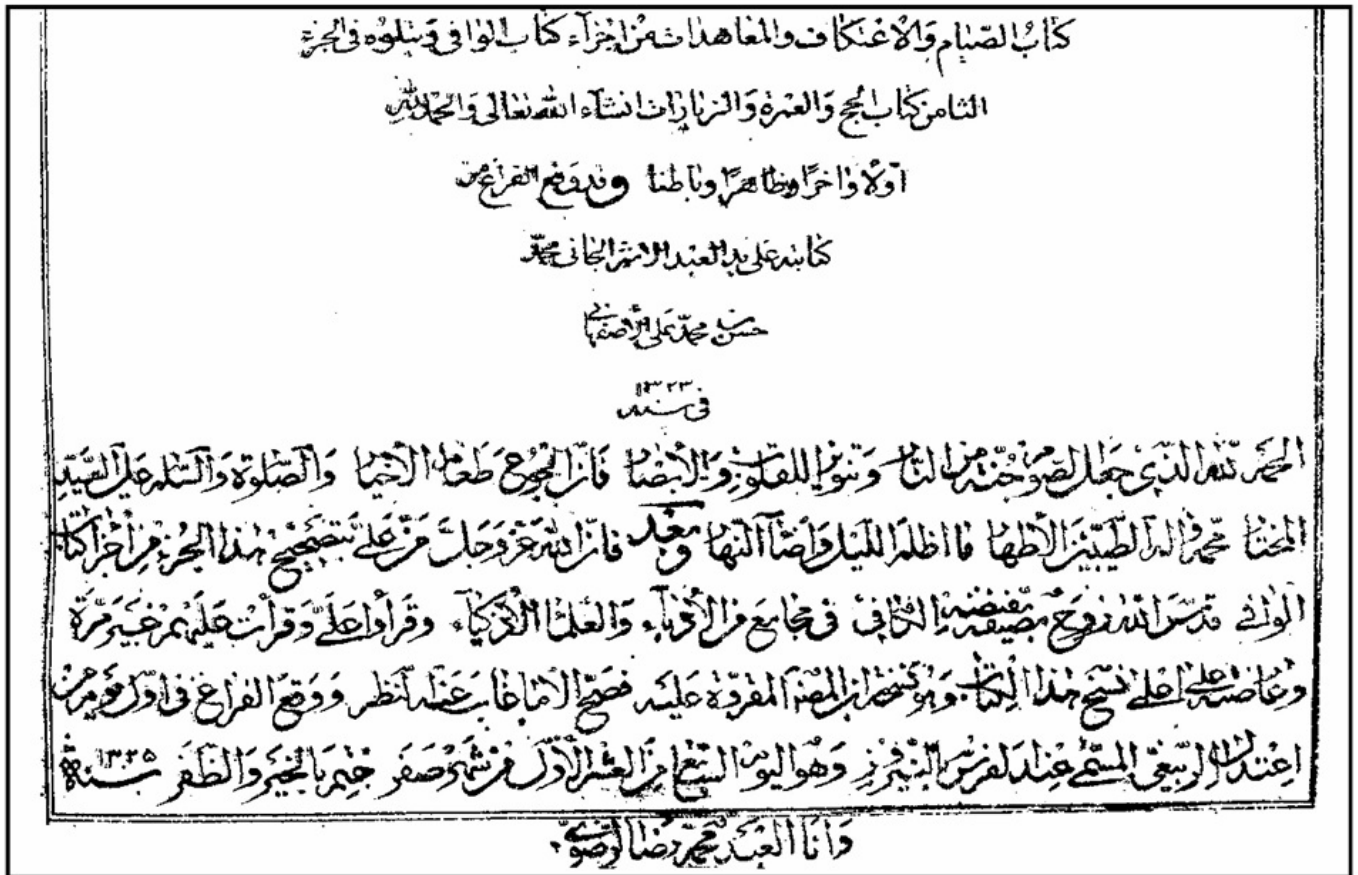 كتاب الصيام والاعتكاف والمعاهدات من اجزاء كتاب الوافى ويتلوه فى الجزء
الثامن كتاب الحج والعمرة والزيارات انشاء الله تعالى والحمد لله
اولا واخرا وظاهرا وباطنا وقد وقع الفراغ من
كتابته على يد العبد الاثم الجانى محمد
حسن بن محمد على الأصفهانى
فى سنه ١٣٢٣
الحمد لله الذى جعل الصوم جنة من النار وتنويرا للقلوب والأبصار فان الجوع طعام الأخيار والصلوة والسلم على السيد
المختار محمد واله الطيبين الأطهار ما اظلم الليل وأضاء النهار وبعد فان الله عز وجل من على بتصحيح هذا الجزء من أجزاء كتاب
الوافى قدس الله روح مصنفه بفيضه الكافى فى مجامع من الأدباء والعلماء الأذكياء وقرأوا على وقرأت عليهم غير مرة
على نسخ هذا الكتاب وهو نسخة ابن المصنف المقروة عليه فصح الا ما غاب عنه النظر ووقع الفراغ فى اول يوم من
اعتدال الربيعى المسمى عند الفرس بالنيروز وهو اليوم السابع من العشر الأول من شهر صفر ختم بالخير والظفر سنة ١٣٢٥
وانا العبد محمد رضا الرضوى